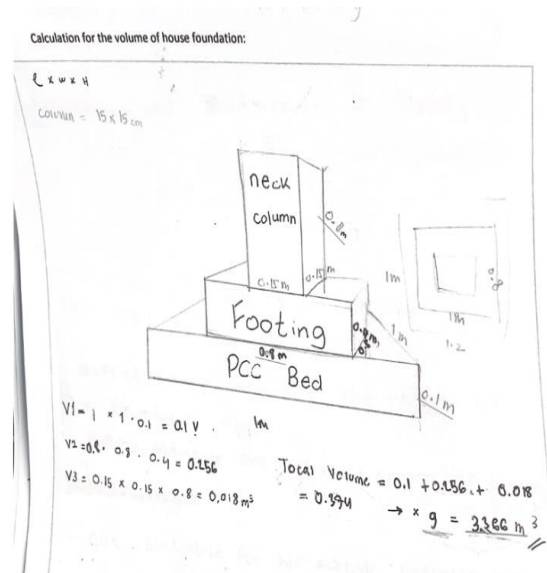 Calculation for the volume of house foundation:
l x w x H
Column = 15 x 15 cm
neck
column
0.8m
0.15 m
0.15 m
Footing
0.8m
1m
PCC Bed
0.1m
1m
0.8
1m
1.2
V1 = 1 x 1 . 0.1 = 0.1
1m
V2 = 0.8 . 0.8 . 0.4 = 0.256
V3 = 0.15 x 0.15 x 0.8 = 0,018 m³
Total Volume = 0.1 + 0.256 + 0.018
= 0.374
→ x 9 = 3.366 m³